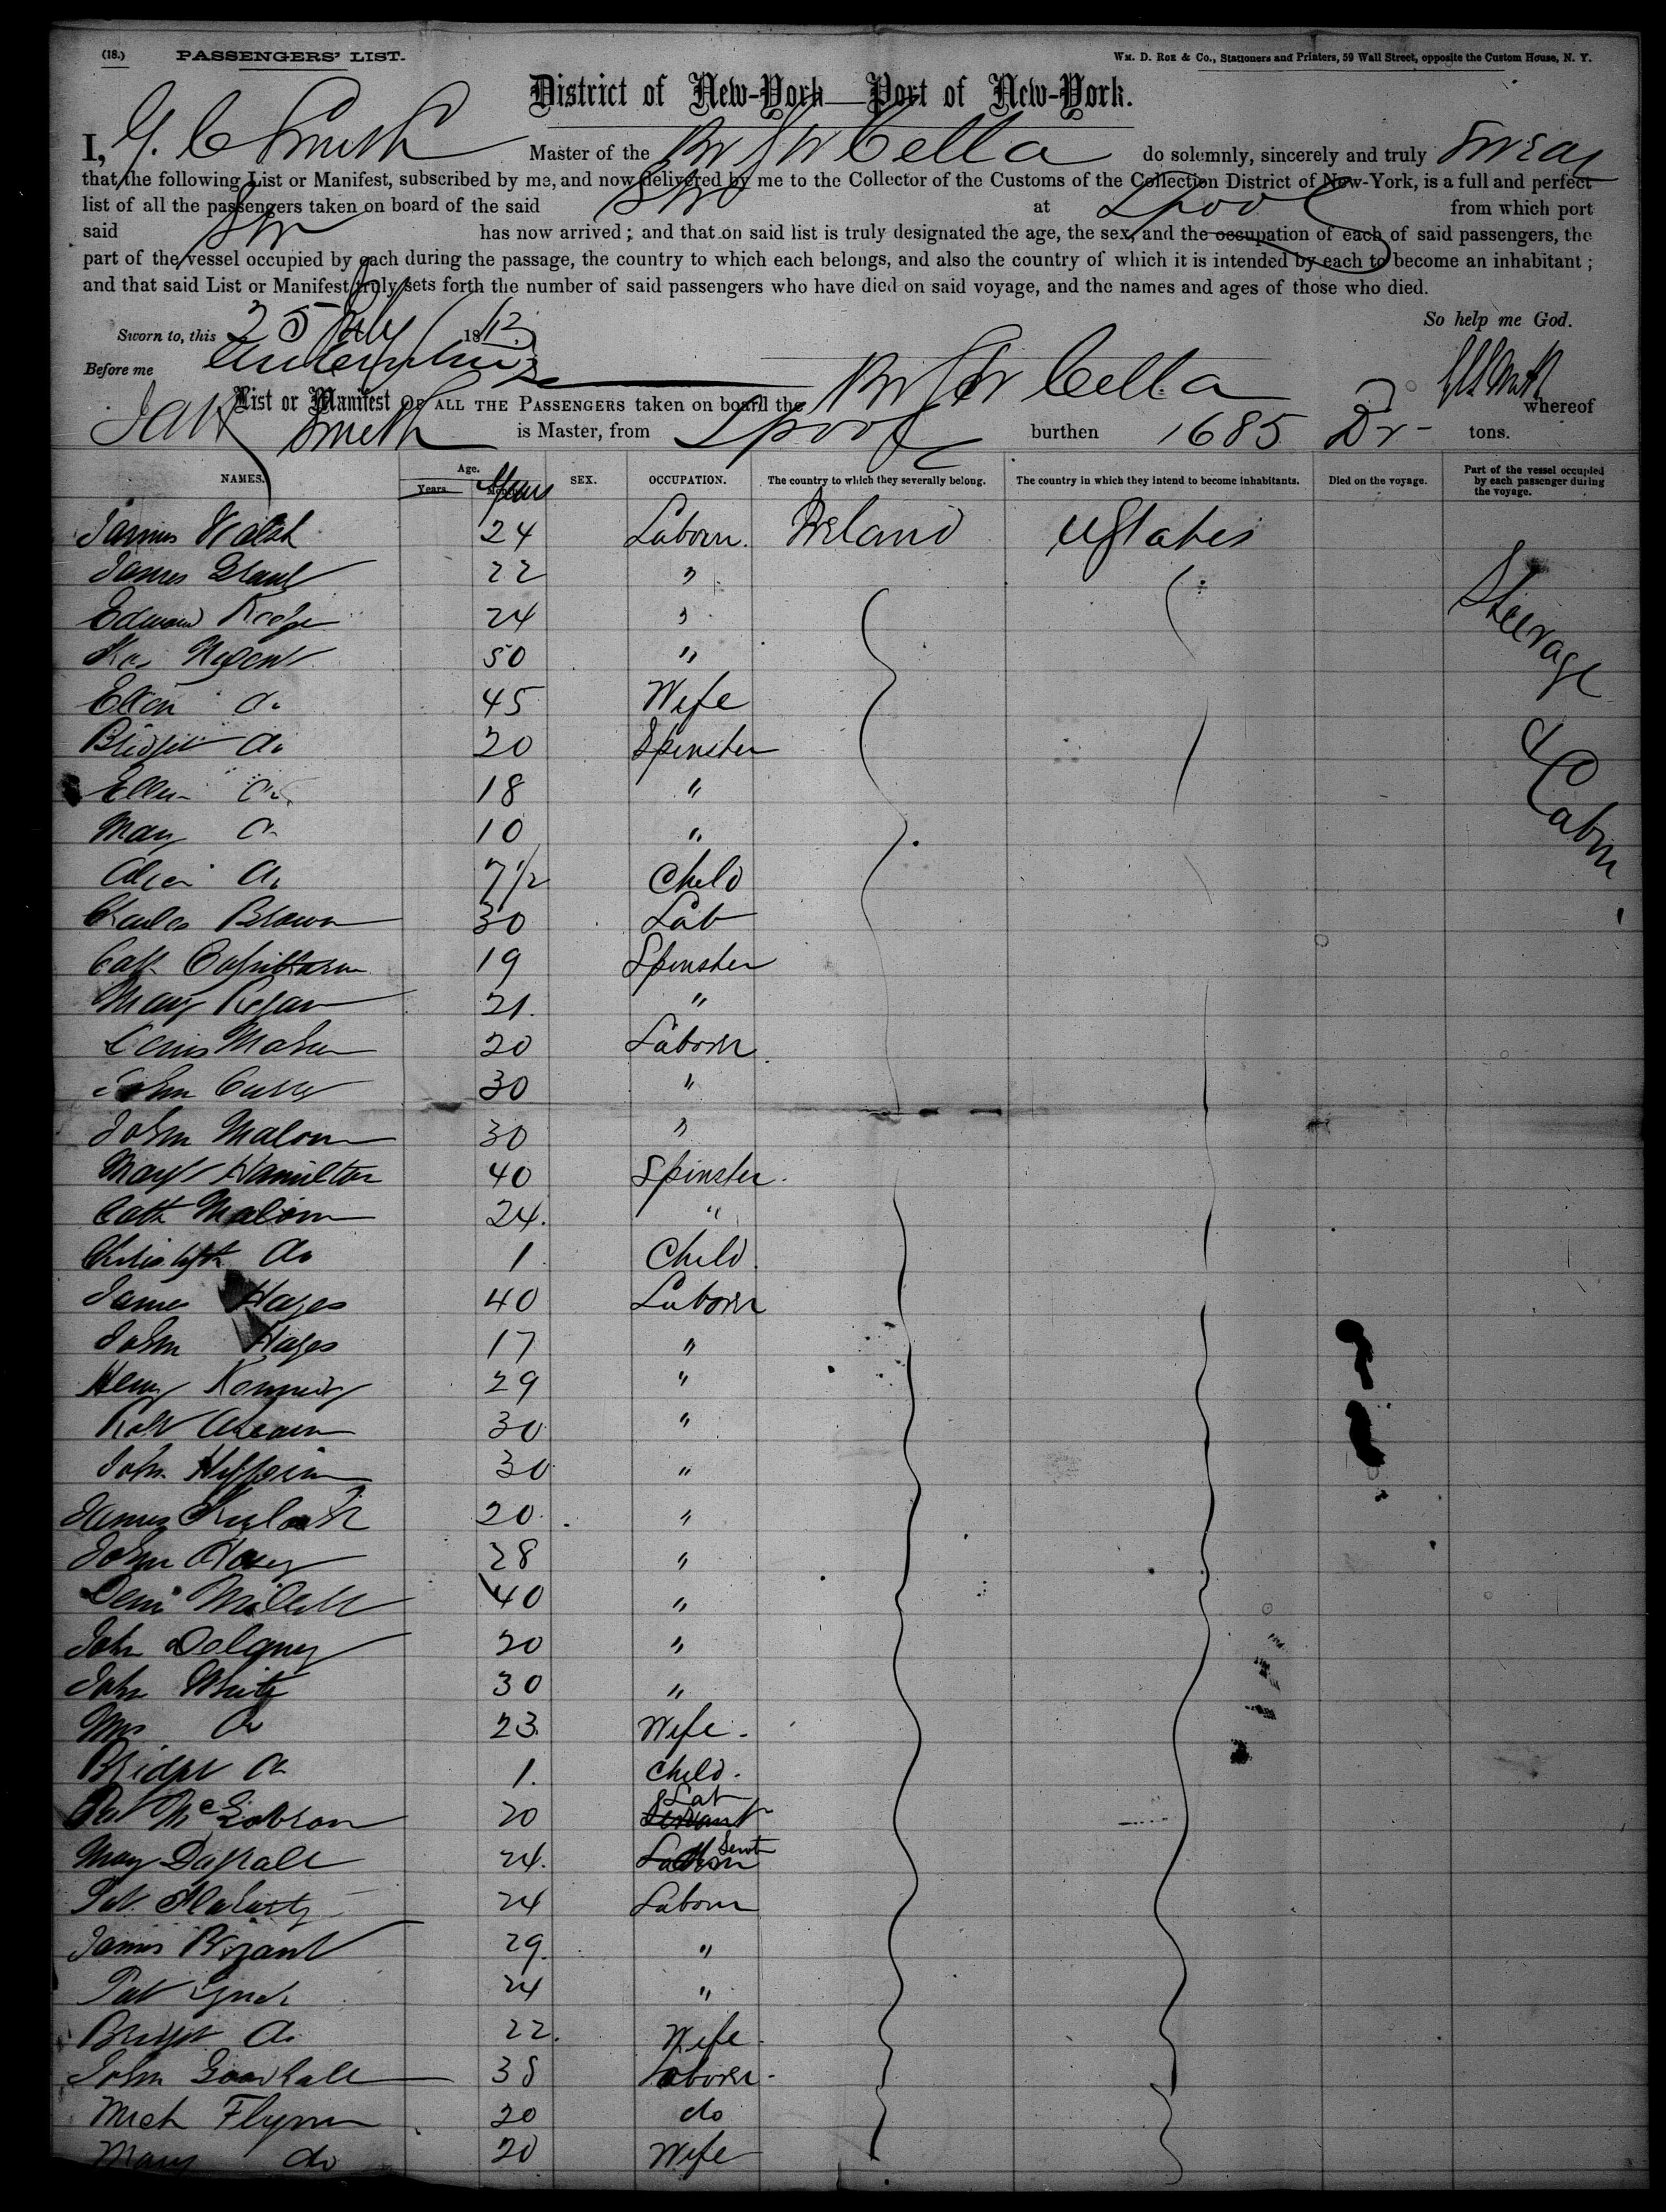 (18.) PASSENGERS' LIST. WM. D. ROE & CO., Stationers and Printers, 59 Wall Street, opposite the Custom House, N. Y.
District of New-York—Port of New-York.
I, G. C Smith Master of the Br Str Cella do solemnly, sincerely and truly swear
that the following List or Manifest, subscribed by me, and now delivered by me to the Collector of the Customs of the Collection District of New-York, is a full and perfect
list of all the passengers taken on board of the said Str at Lpool from which port
said Str has now arrived; and that on said list is truly designated the age, the sex, and the occupation of each of said passengers, the
part of the vessel occupied by each during the passage, the country to which each belongs, and also the country of which it is intended by each to become an inhabitant;
and that said List or Manifest truly sets forth the number of said passengers who have died on said voyage, and the names and ages of those who died.
So help me God.
Sworn to, this 25 18
Before me
List or Manifest OF ALL THE PASSENGERS taken on board the Br Str Cella whereof
Smith is Master, from Lpool burthen 1685 tons.
NAMES. Age. Years Years SEX. OCCUPATION. The country to which they severally belong. The country in which they intend to become inhabitants. Died on the voyage. Part of the vessel occupied by each passenger during the voyage.
James Walsh 24 Laborer. Ireland UStates
James Grant 22 "
Steerage & Cabin
Edward 24 "
Nugent 50 "
Ellen do 45 Wife
Bridget do 20 Spinster
Ellen do 18 "
Mary do 10 "
do 7 1/2 Child
Charles Brown 30 Lab
Cath 19 Spinster
Mary Regan 21. "
Denis Maher 20 Laborer
John 30 "
John Malone 30 "
Mary Hamilton 40 Spinster.
Cath Malone 24. "
do 1 Child.
James Hayes 40 Laborer
John Hayes 17 "
Henry Kennedy 29 "
Robt 30 "
John 30 "
James 20 "
John 28 "
40 "
John Delaney 20 "
John White 30 "
Mrs do 23 Wife.
Bridget do 1. Child.
Pat 20 Servant Lab
Mary 24. Laborer Servt
Pat Flaherty 24 Laborer
James Bryant 29. "
Pat Lynch 24 "
Bridget do 22. Wife.
John Goodall 38 Laborer.
Mich Flynn 20 do
Mary do 20 Wife